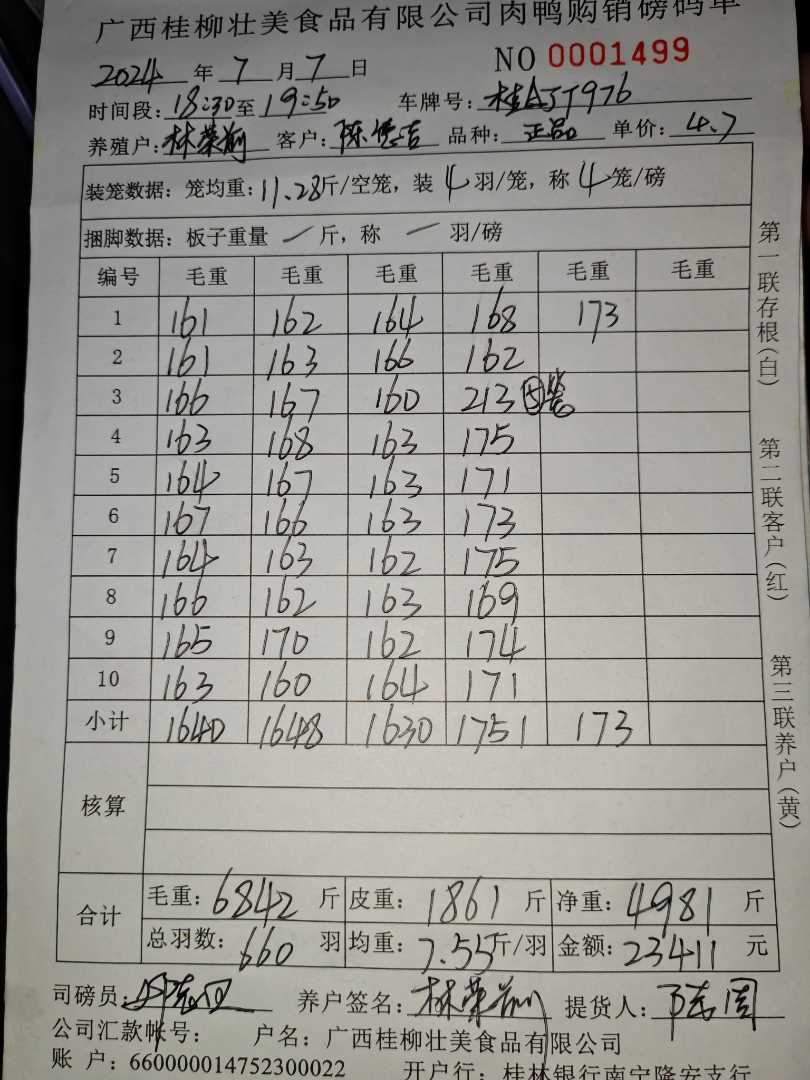 广西桂柳壮美食品有限公司肉鸭购销磅码单
NO 0001499
2024 年 7 月 7 日
时间段: 18:30 至 19:50 车牌号: 桂AJT976
养殖户: 林荣前 客户: 陈德吉 品种: 正品 单价: 4.7
装笼数据: 笼均重: 11.28 斤/空笼, 装 4 羽/笼, 称 4 笼/磅
捆脚数据: 板子重量 一 斤, 称 一 羽/磅
编号 毛重 毛重 毛重 毛重 毛重 毛重
1 161 162 164 168 173
2 161 163 166 162
3 166 167 160 213 ⑤
4 163 168 163 175
5 164 167 163 171
6 167 166 163 173
7 164 163 162 175
8 166 162 163 169
9 165 170 162 174
10 163 160 164 171
小计 1640 1648 1630 1751 173
核算
合计 毛重: 6842 斤 皮重: 1861 斤 净重: 4981 斤
总羽数: 660 羽 均重: 7.55 斤/羽 金额: 23411 元
司磅员: 养户签名: 林荣前 提货人:
公司汇款帐号: 户名: 广西桂柳壮美食品有限公司
账 户: 660000014752300022 开户行: 桂林银行南宁隆安支行
第一联存根(白) 第二联客户(红) 第三联养户(黄)